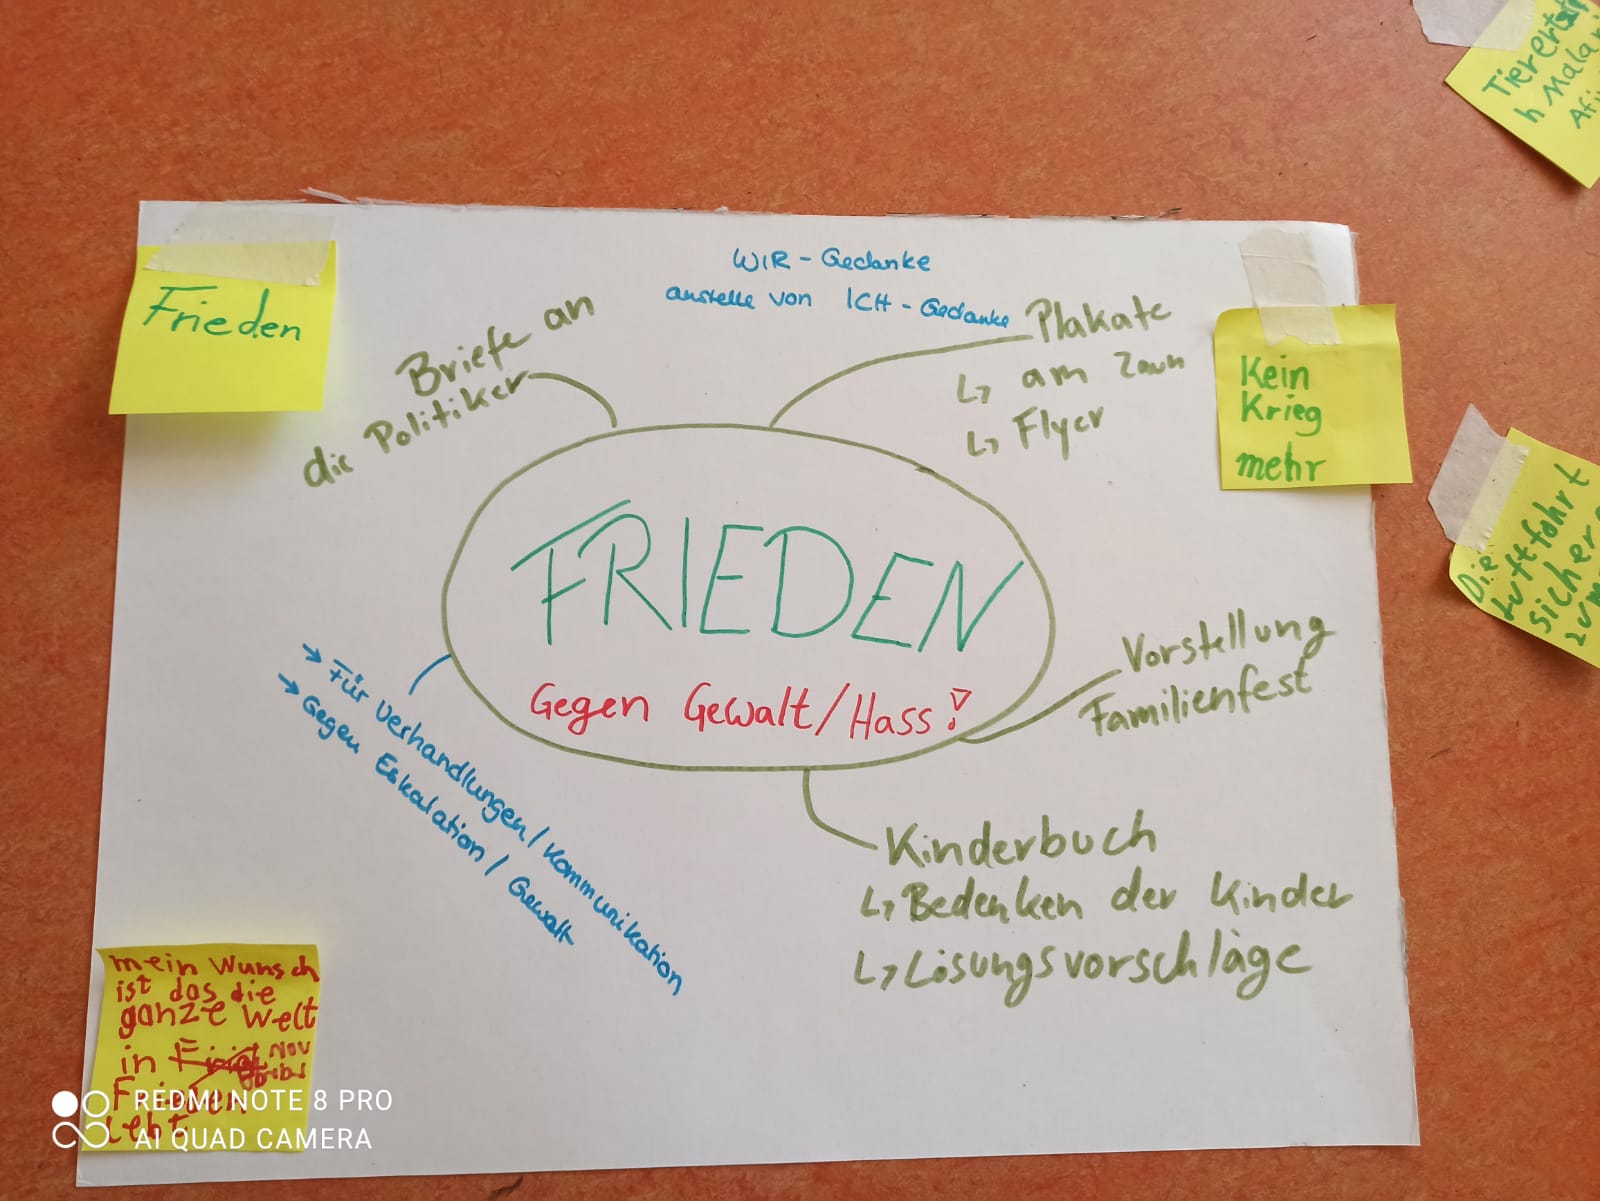 Frieden
WIR - Gedanke
anstelle von ICH - Gedanke
Briefe an
die Politiker
Plakate
↳ am Zaun
↳ Flyer
Kein
Krieg
mehr
FRIEDEN
Gegen Gewalt/Hass!
→ Für Verhandlungen/Kommunikation
→ Gegen Eskalation/Gewalt
Vorstellung
Familienfest
Kinderbuch
↳ Bedenken der Kinder
↳ Lösungsvorschläge
mein Wunsch
ist das die
ganze Welt
in
Frieden
Lebt
Die
Luftfahrt
sicher
REDMI NOTE 8 PRO
AI QUAD CAMERA